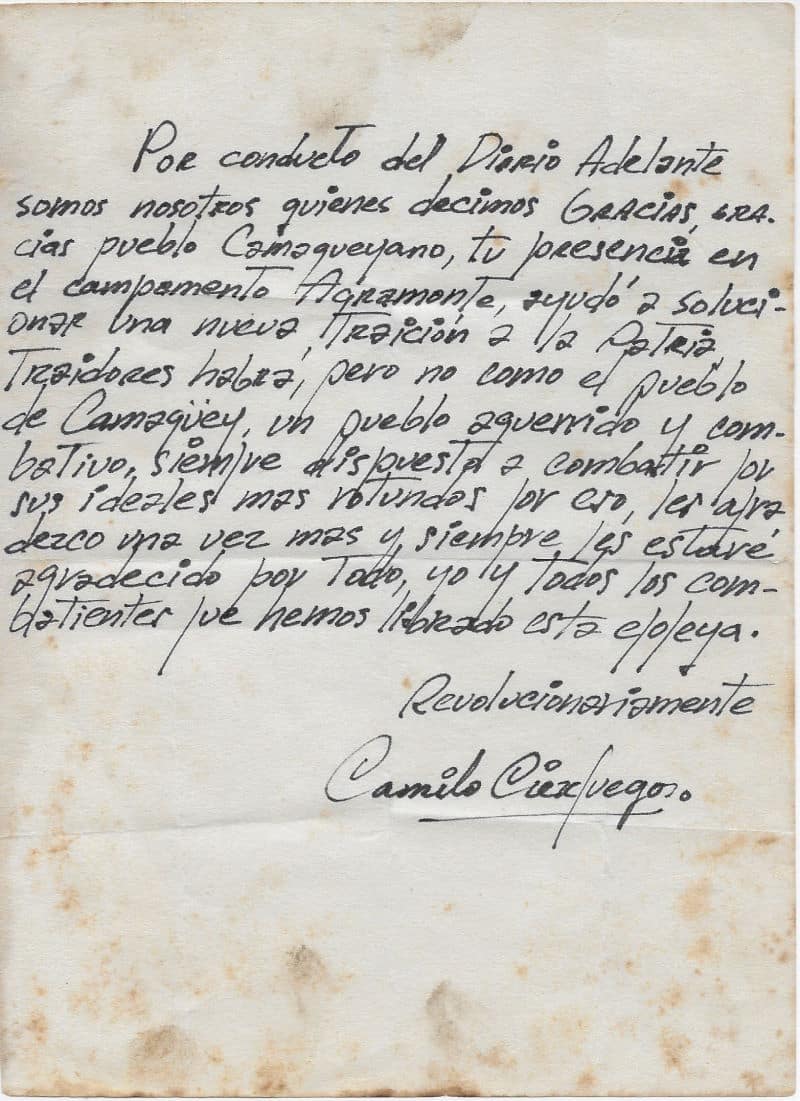 Por conducto del Diario Adelante
somos nosotros quienes decimos GRACIAS, GRA-
cias pueblo Camagueyano, tu presencia en
el campamento Agramonte, ayudó a soluci-
onar una nueva traición a la Patria,
Traidores habrá, pero no como el pueblo
de Camagüey, un pueblo aguerrido y com-
bativo, siempre dispuesta a combatir por
sus ideales mas rotundos por eso, les agra
dezco una vez mas y, siempre les estaré
agradecido por Todo, yo y Todos los com-
batientes que hemos librado esta epopeya.
Revolucionariamente
Camilo Cienfuegos.